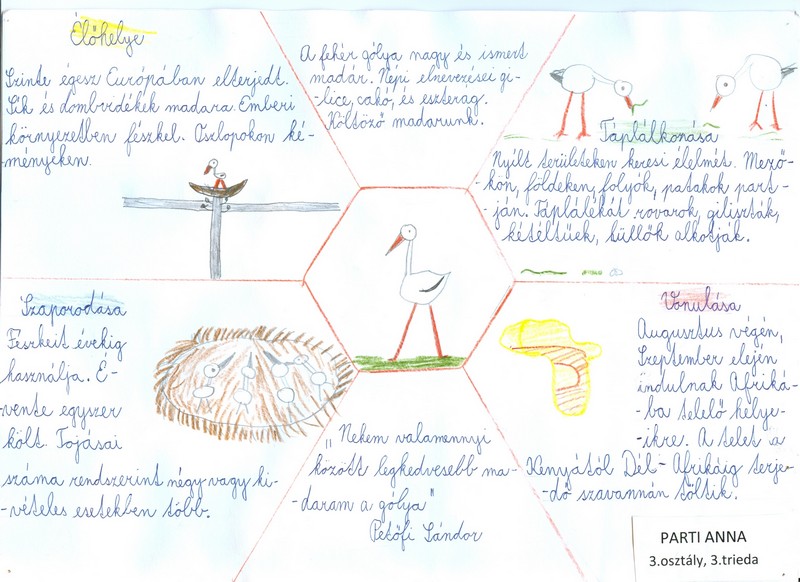 Élőhelye
Szinte egész Európában elterjedt.
Sík és dombvidékek madara. Emberi
környezetben fészkel. Oszlopokon ké-
-ményeken.
A fehér gólya nagy és ismert
madár. Népi elnevezései gi-
-lice, cakó, és eszterag.
Költöző madarunk.
Táplálkozása
Nyílt területeken keresi élelmét. Mező-
-kön, földeken, folyók, patakok part-
-ján. Táplálékát rovarok, giliszták,
kétéltűek, hüllők alkotják.
Szaporodása
Feszkeit évekig
használja. É-
-vente egyszer
költ. Tojásai
száma rendszerint négy vagy ki-
-vételes esetekben több.
„Nekem valamennyi
között legkedvesebb ma-
-daram a gólya"
Petőfi Sándor
Vonulása
Augusztus végén,
Szeptember elején
indulnak Afriká-
-ba telelő helye-
-ikre. A telet a
Kenyától Dél-Afrikáig terje-
-dő szavannán töltik.
PARTI ANNA
3.osztály, 3.trieda